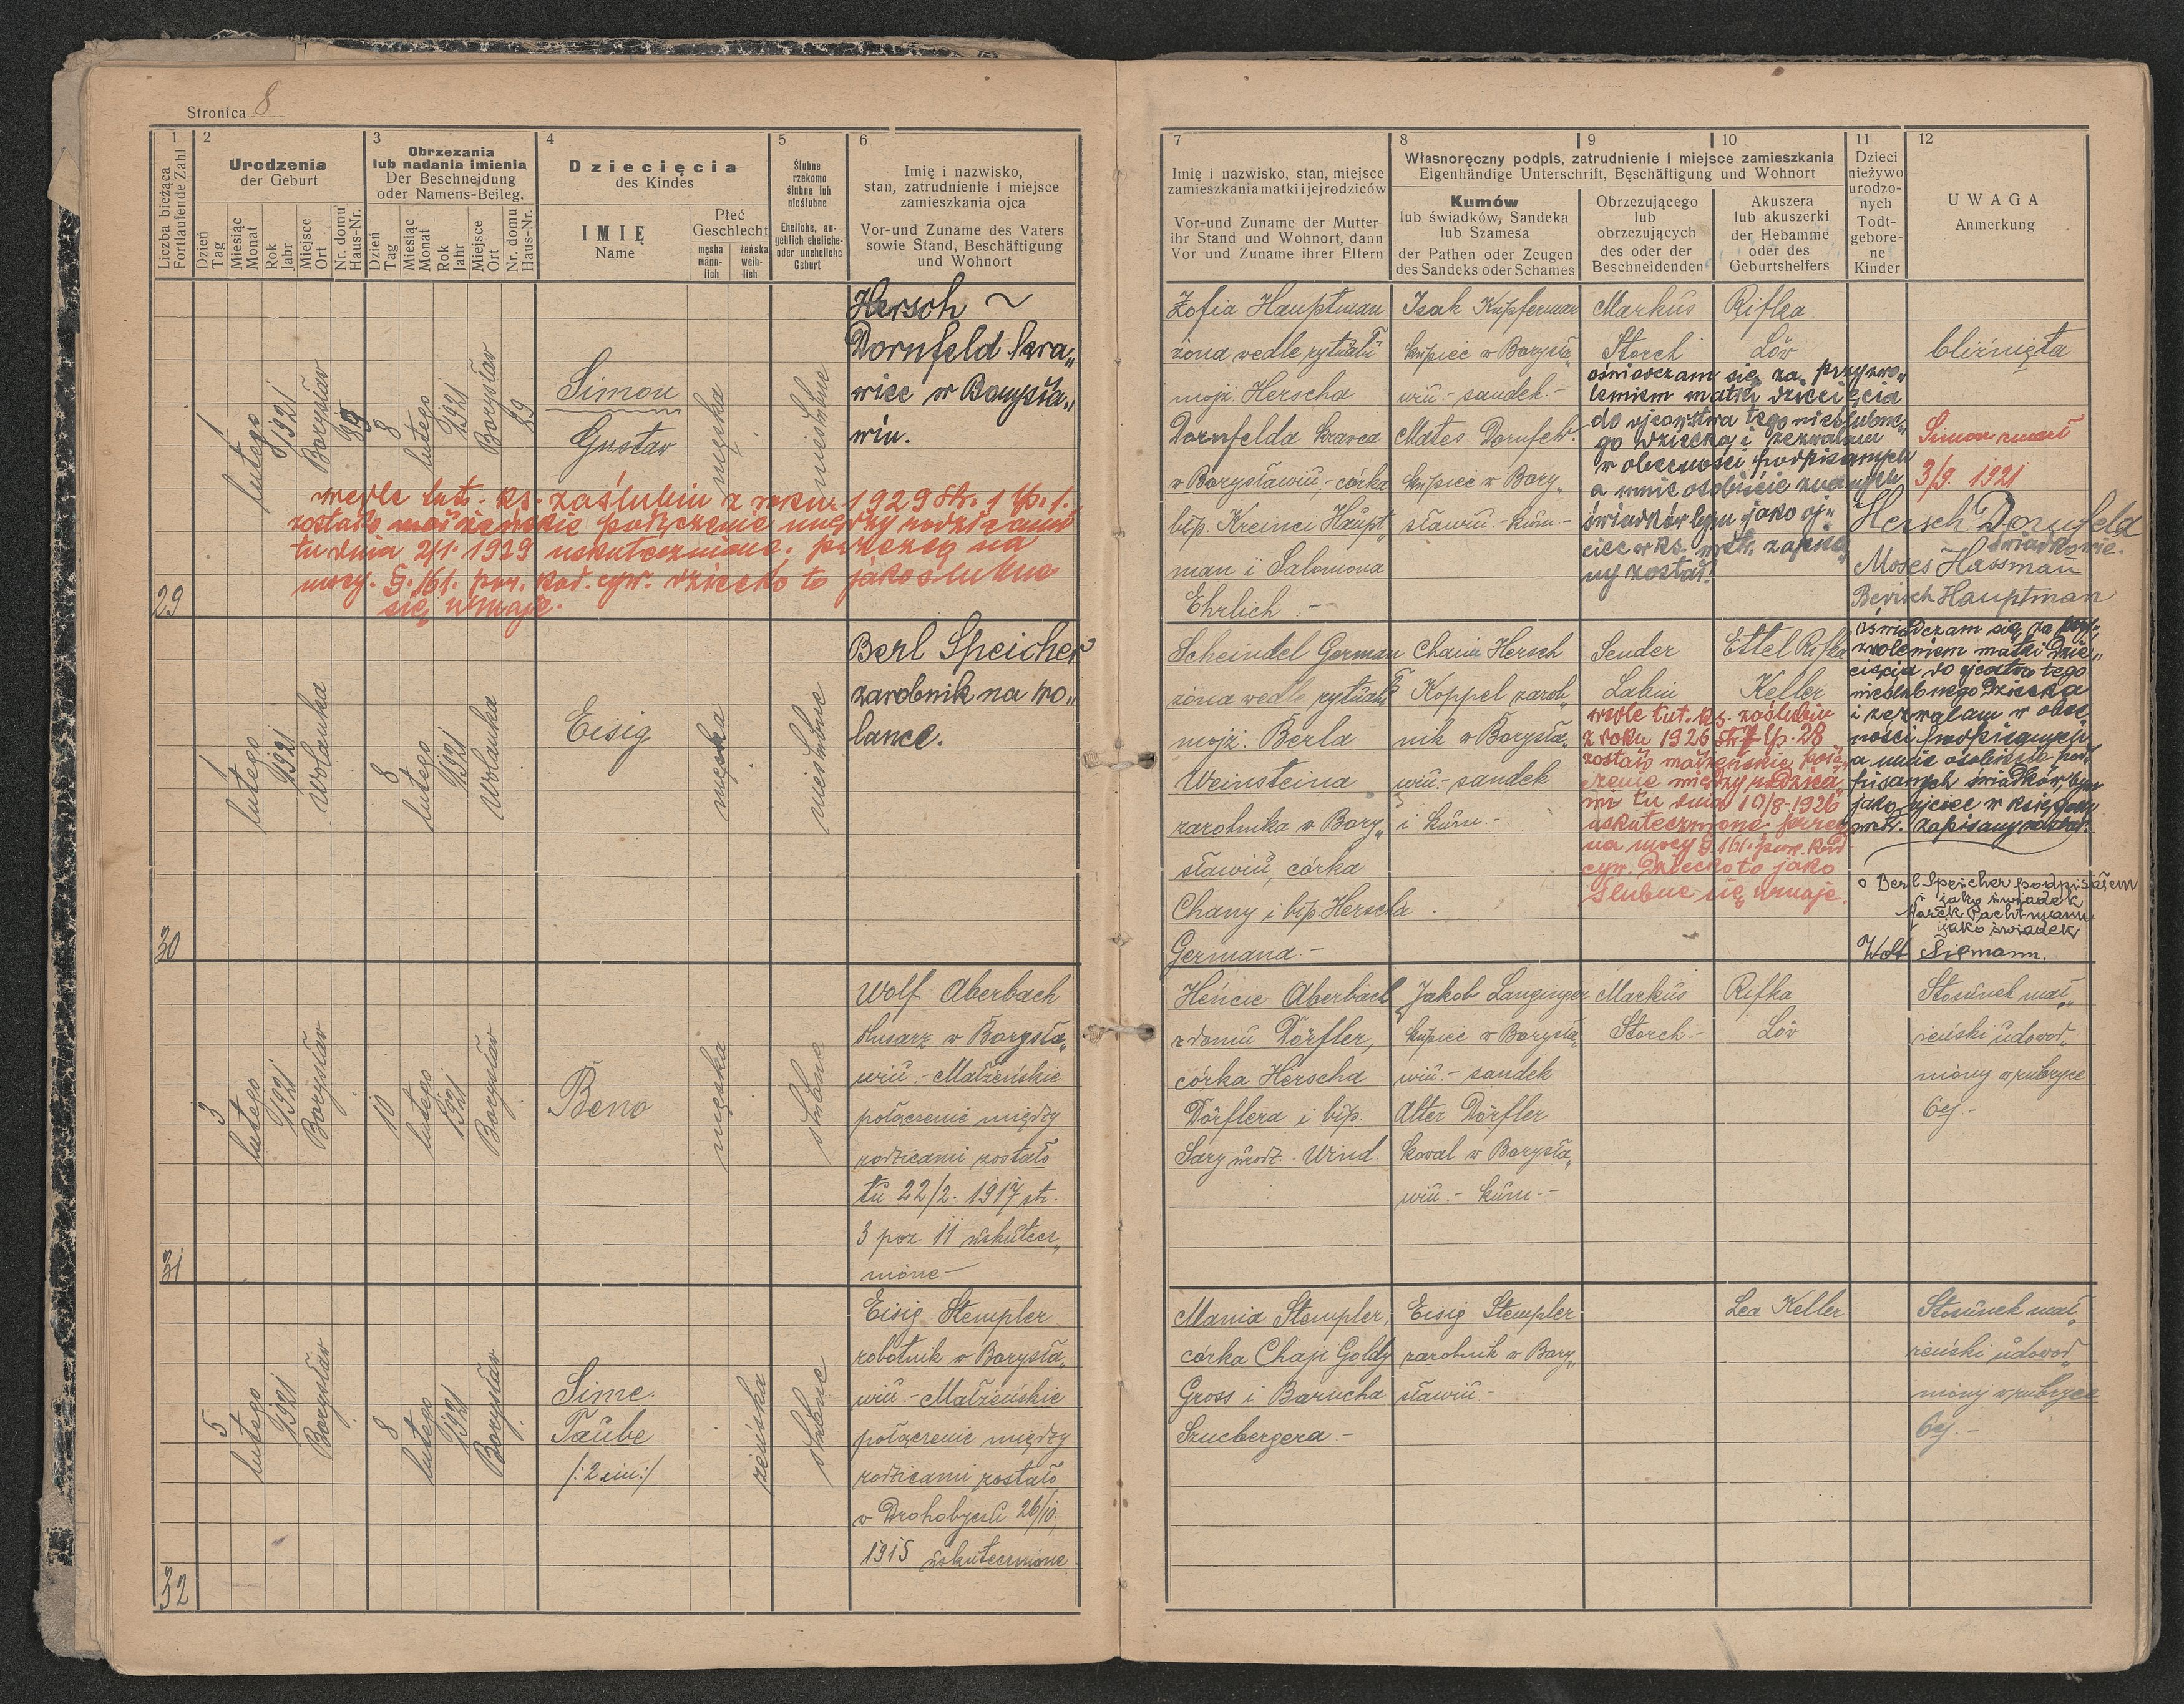 Stronica 8
1
Liczba bieżąca
Fortlaufende Zahl
2
Urodzenia
der Geburt
Dzień
Tag
Miesiąc
Monat
Rok
Jahr
Miejsce
Ort
Nr. domu
Haus-Nr.
3
Obrzezania
lub nadania imienia
Der Beschneidung
oder Namens-Beileg.
Dzień
Tag
Miesiąc
Monat
Rok
Jahr
Miejsce
Ort
Nr. domu
Haus-Nr.
4
Dziecięcia
des Kindes
IMIĘ
Name
Płeć
Geschlecht
męska
männ-
lich
żeńska
weib-
lich
5
Ślubne
rzekomo
ślubne lub
nieślubne
Eheliche, an-
geblich eheliche-
oder uneheliche
Geburt
6
Imię i nazwisko,
stan, zatrudnienie i miejsce
zamieszkania ojca
Vor-und Zuname des Vaters
sowie Stand, Beschäftigung
und Wohnort
7
Imię i nazwisko, stan, miejsce
zamieszkania matki i jej rodziców
Vor-und Zuname der Mutter
ihr Stand und Wohnort, dann
Vor und Zuname ihrer Eltern
8
9
10
Własnoręczny podpis, zatrudnienie i miejsce zamieszkania
Eigenhändige Unterschrift, Beschäftigung und Wohnort
Kumów
lub świadków, Sandeka
lub Szamesa
der Pathen oder Zeugen
des Sandeks oder Schames
Obrzezującego
lub
obrzezujących
des oder der
Beschneidenden
Akuszera
lub akuszerki
der Hebamme
oder des
Geburtshelfers
11
Dzieci
nieżywo
urodzo-
nych
Todt-
gebore-
ne
Kinder
12
UWAGA
Anmerkung
29
1
lutego
1921
Borysław
89
8
lutego
1921
Borysław
89
Simon
Gustav
męska
nieślubne
Hersch ~
Dornfeld kra„
wiec w Borysła„
wiu.
wedle tut. ks. zaślubin z roku 1929 str. 1 lp. 1.
zostało małżeńskie połączenie między rodzicami
tu dnia 2/1. 1929 uskutecznione, przeczą na
mocy. §. 161. pow. kod. cyw. dziecko to jako ślubne
się uznaje.
Zofia Hauptman
żona wedle rytuału
mojż. Herscha
Dornfelda krawca
w Borysławiu, - córka
błp. Kreinci Haupt„
man i Salomona
Ehrlich . -
Isak Kupferman
kupiec w Borysła„
wiu. - sandek. -
Mates Dornfeld.
kupiec w Bory„
sławiu. - kum. -
Markus
Storch
Rifka
Löw
oświadczam się za przyzwo„
leniem matki dziecięcia
do ojcowstwa tego nieślubne„
go dziecka i zezwalam
w obecności podpisanych
a mnie osobiście znanych
świadków bym jako oj„
ciec w ks. metr. zapisa„
ny został.
bliźnięta
Simon zmarł
3/9. 1921
Hersch Dornfeld
świadkowie.
Moses Hassman
Berisch Hauptman
30
1
lutego
1921
Wolanka
8
lutego
1921
Wolanka
Eisig
męska
nieślubne
Berl Speicher
zarobnik na wo„
lance.
Scheindel German
żona wedle rytuału
mojż. Berla
Weinsteina
zarobnika w Bory„
sławiu, córka
Chany i błp. Herscha
Germana -
Chaim Hersch
Koppel zarob„
nik w Borysła„
wiu. - sandek
i kum. -
Sender
Labin
Ettel Rifka
Keller
wedle tut. ks. zaślubin
z roku 1926 str. 7 lp. 28
zostało małżeńskie połą„
czenie między rodzica„
mi tu dnia 10/8 - 1926
uskutecznione przez
na mocy §. 161. pow. kod.
cyw. dziecko to jako
ślubne się uznaje.
oświadczam się za przy„
zwoleniem matki dzie„
cięcia do ojcostwa tego
nieślubnego dziecka
i zezwalam w obec„
ności podpisanych
a mnie osobiście pod„
pisanych świadków bym
jako ojciec w księdze
metr. zapisany został.
Berl Speicher podpisałem
jako świadek
Marek Pachtmann
jako świadek
Wolf Sigmann.
31
3
lutego
1921
Borysław
10
lutego
1921
Borysław
Beno
męska
ślubne
Wolf Aberbach
ślusarz w Borysła„
wiu. - Małżeńskie
połączenie między
rodzicami zostało
tu 22/2. 1917 str.
3 poz 11 uskutecz„
nione -
Hencie Aberbach
z domu Dörfler,
córka Herscha
Dörflera i błp.
Sary urodz. Wind.
Jakob Langinger
kupiec w Borysła„
wiu. - sandek
Alter Dörfler
kowal w Borysła„
wiu. - kum. -
Markus
Storch. -
Rifka
Löw
Stosunek mał„
żeński udowod„
niony w rubryce
6ej. -
32
5
lutego
1921
Borysław
8
lutego
1921
Borysław
Sime
Taube
/: 2 im :/
żeńska
ślubne
Eisig Stempler
robotnik w Borysła„
wiu. - Małżeńskie
połączenie między
rodzicami zostało
w Drohobyczu 26/10.
1915 uskutecznione
Mania Stempler,
córka Chaji Goldy
Gross i Barucha
Sznebergera. -
Eisig Stempler
zarobnik w Bory„
sławiu. -
Lea Keller
Stosunek mał„
żeński udowod„
niony w rubryce
6ej. -